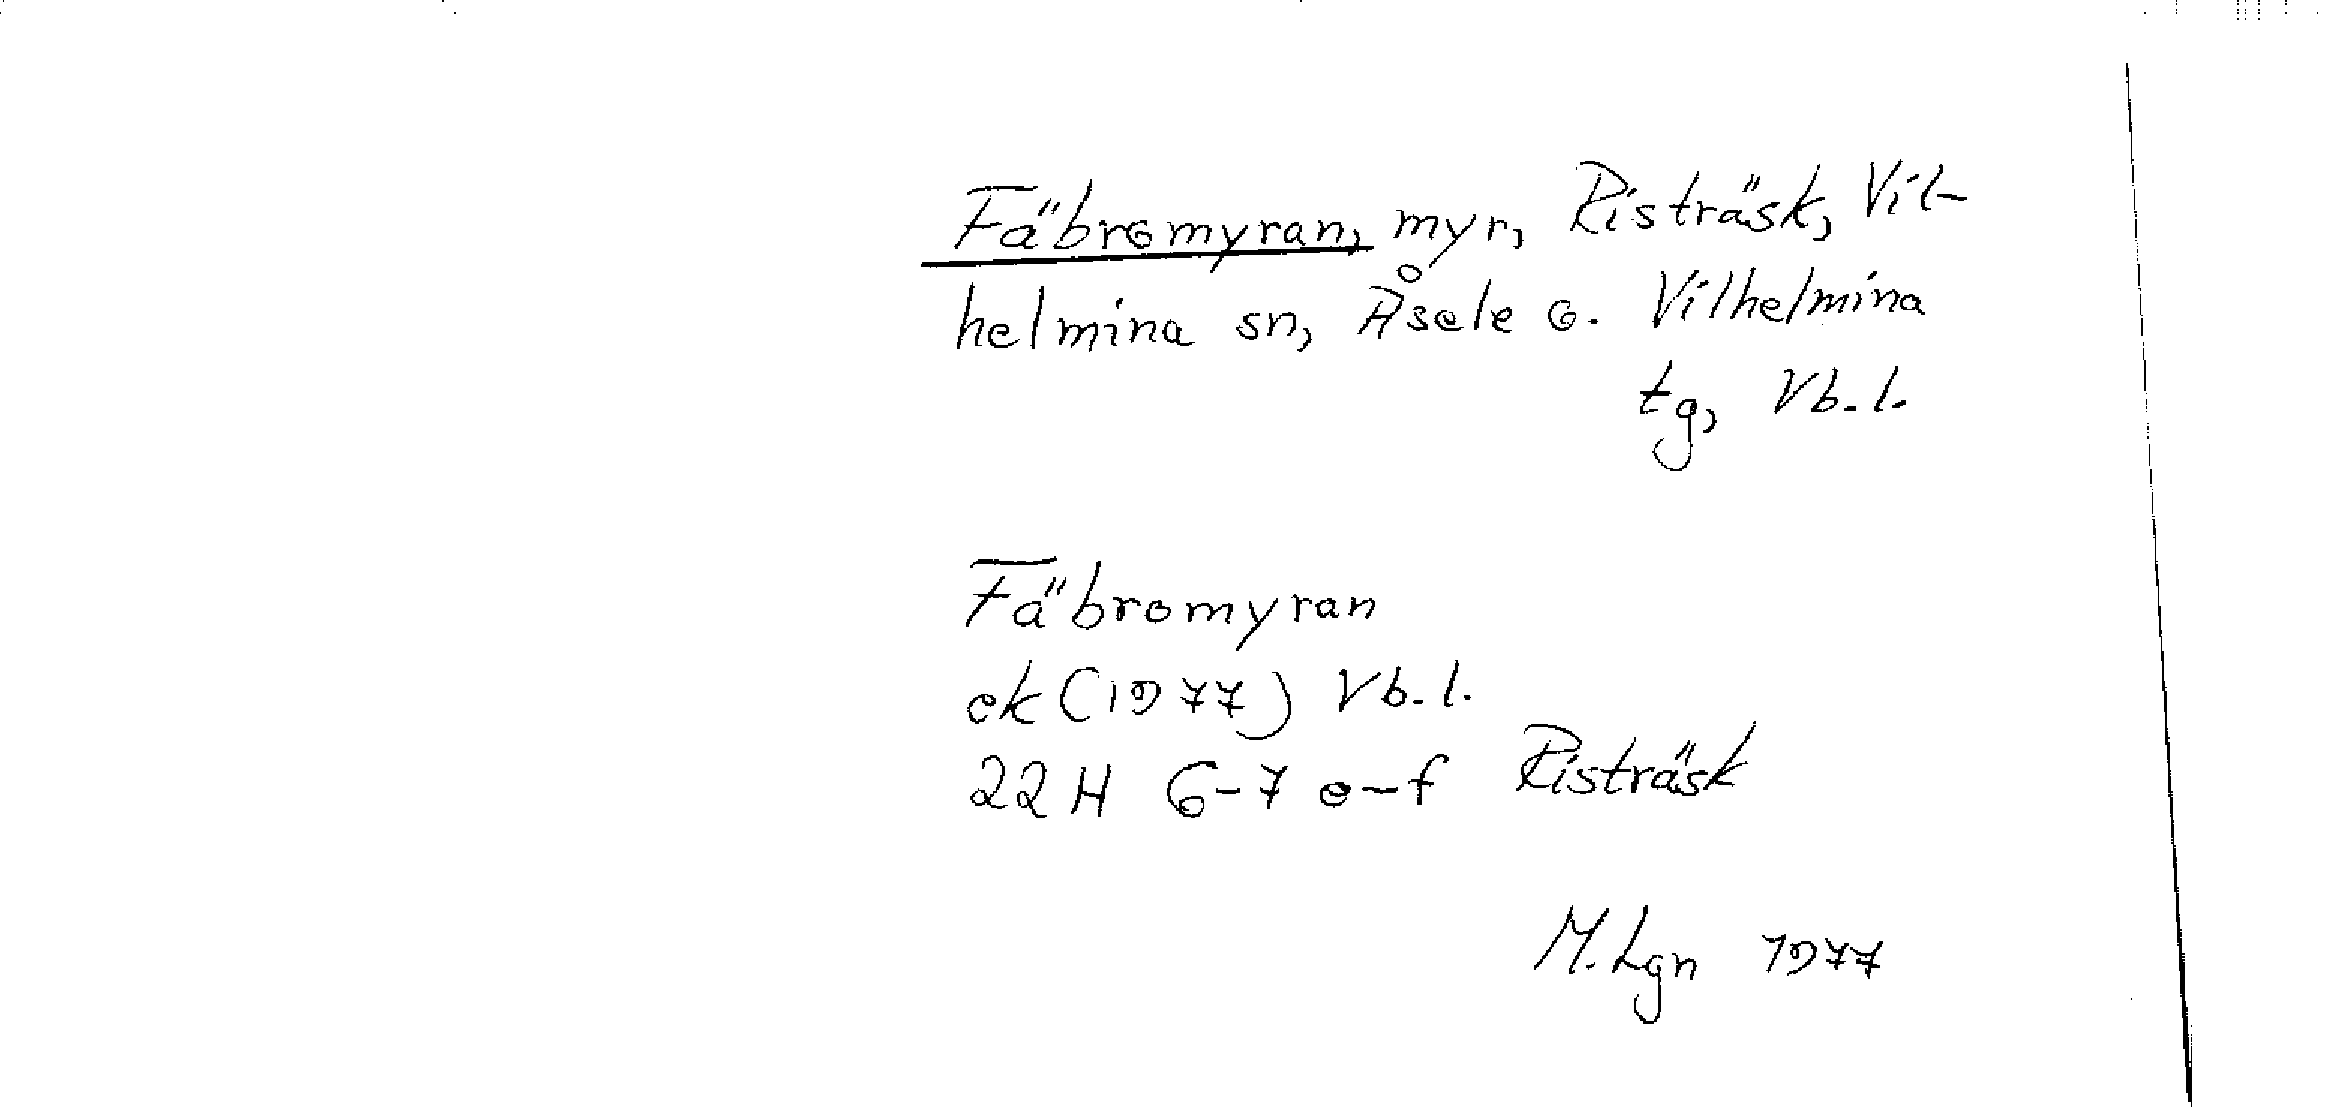 Fäbromyran, myr, Risträsk, Vil-
helmina sn, Åsele o. Vilhelmina
tg, Vb. l.
Fäbromyran
ek (1977) Vb. l.
22 H 6-7 e-f Risträsk
M. Lgn 1977